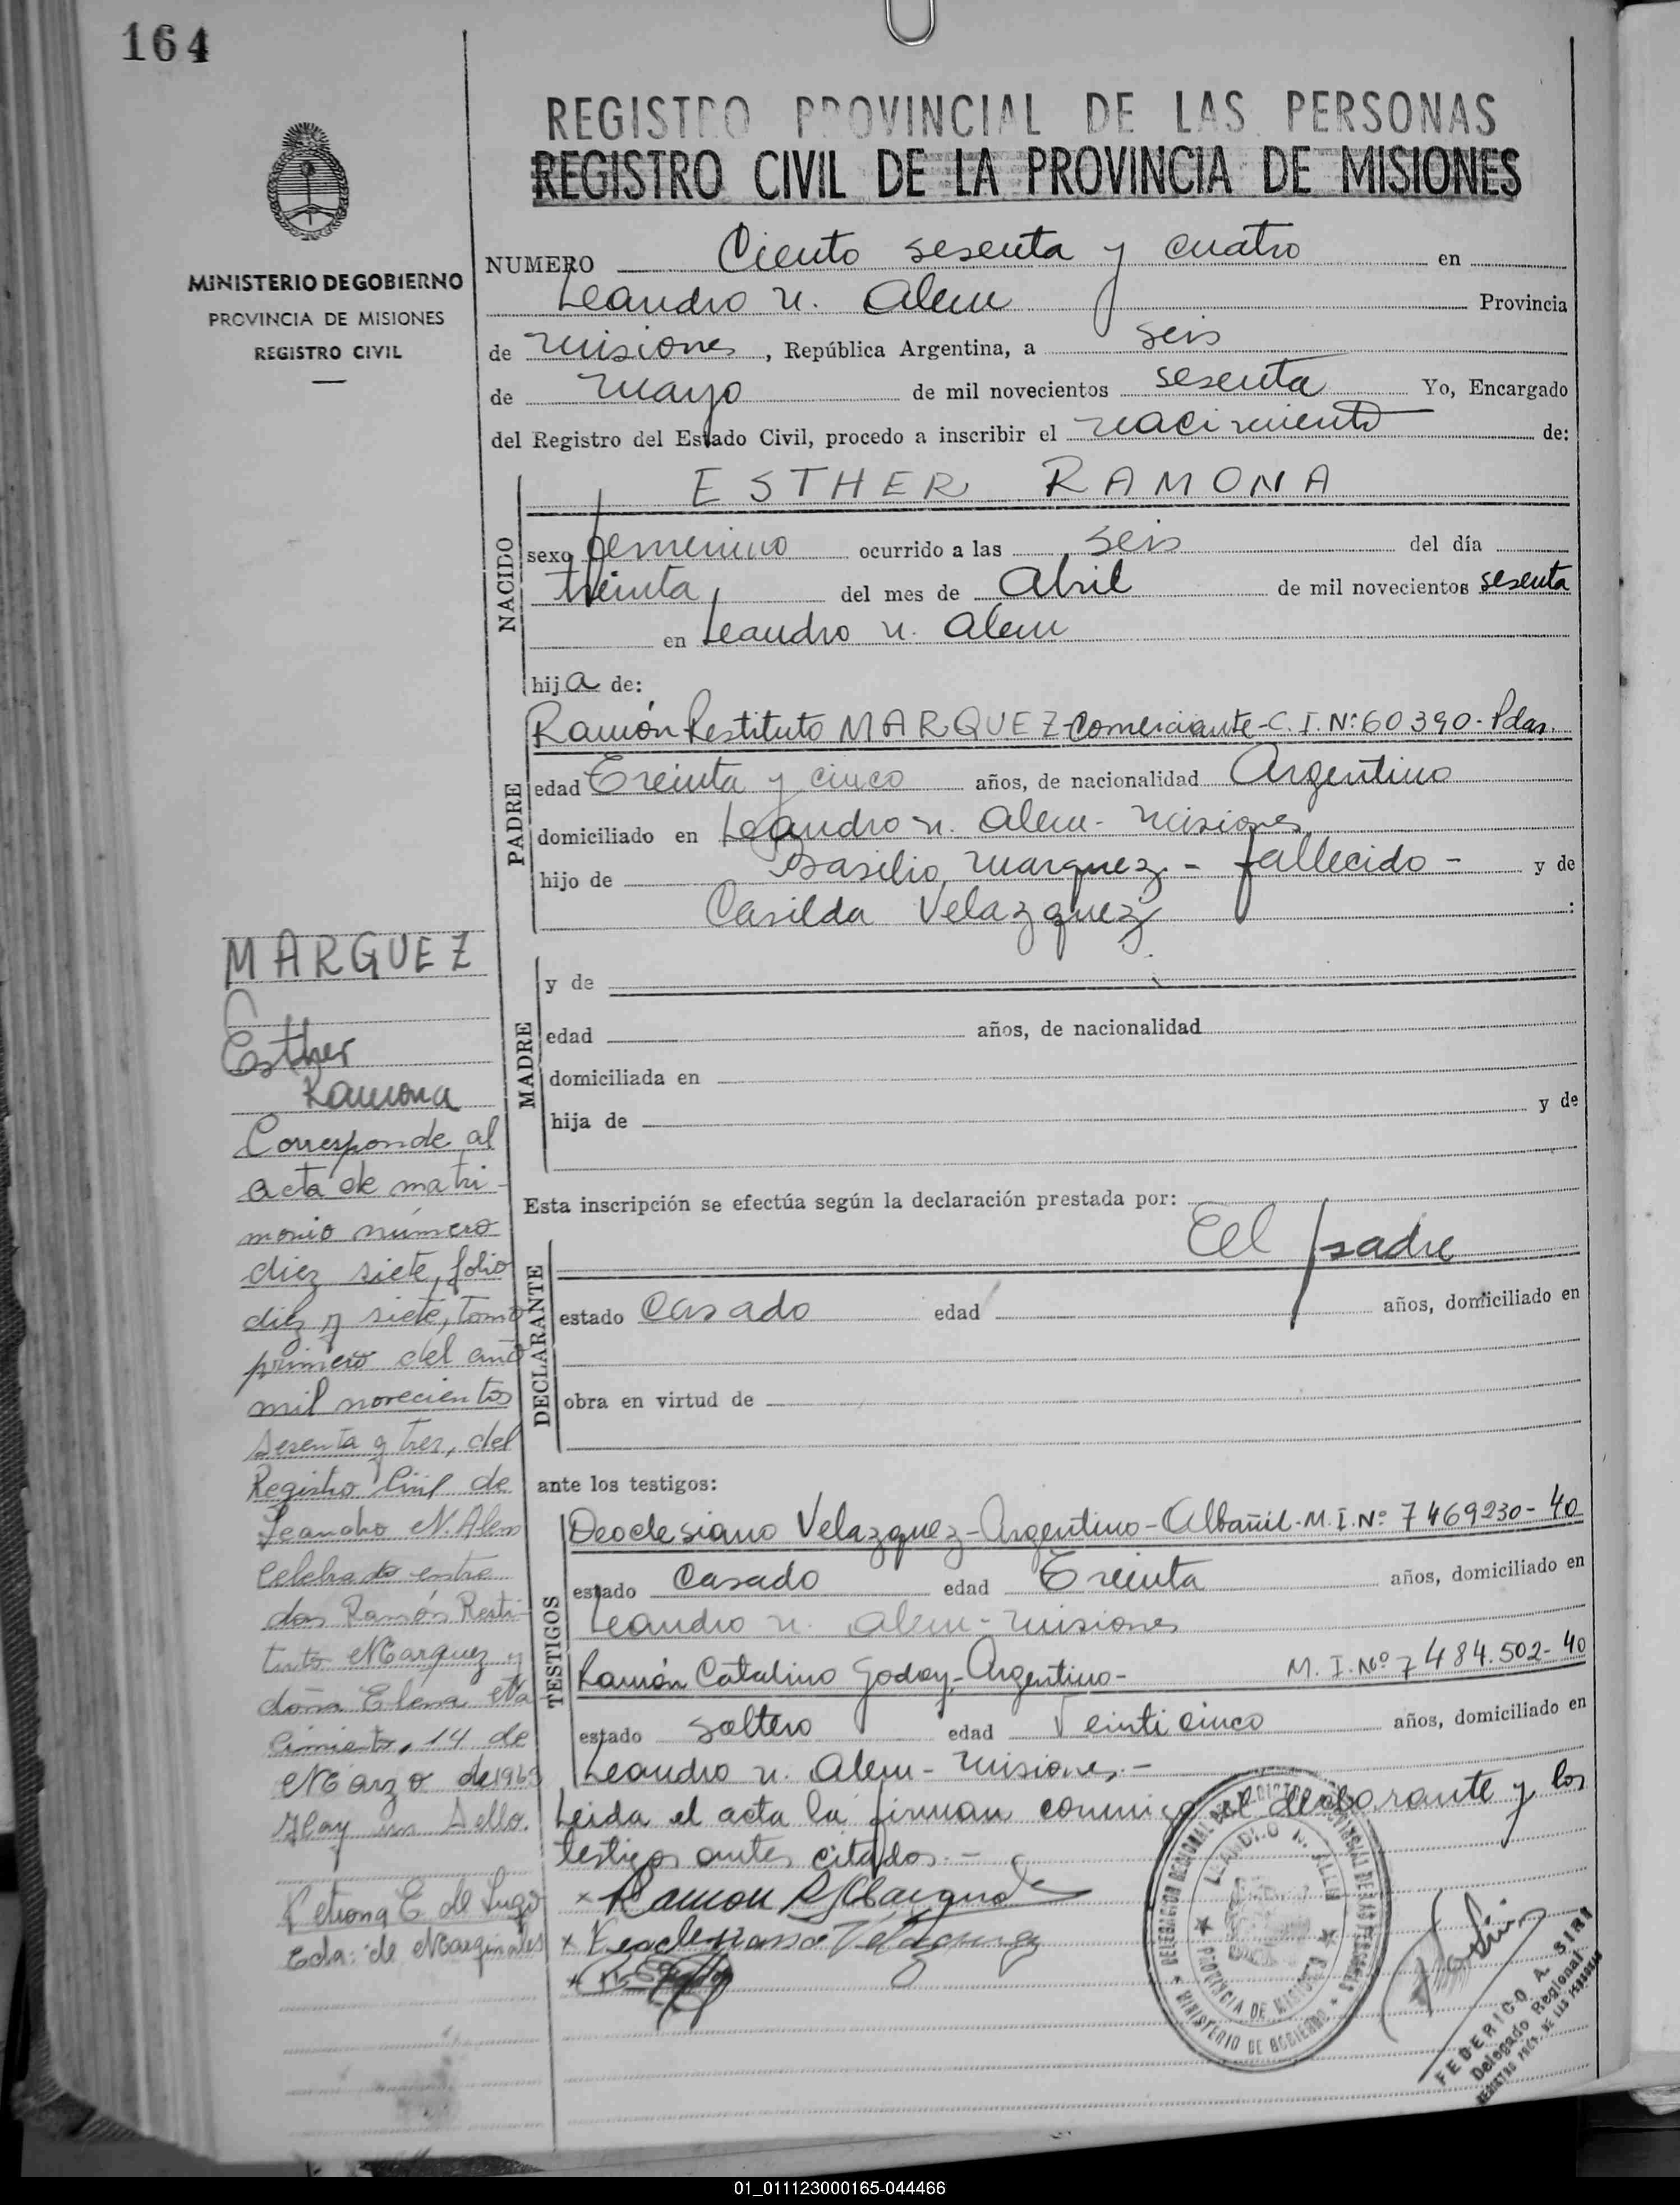 164
REGISTRO PROVINCIAL DE LAS PERSONAS
REGISTRO CIVIL DE LA PROVINCIA DE MISIONES
MINISTERIO DE GOBIERNO
PROVINCIA DE MISIONES
REGISTRO CIVIL
NUMERO Ciento sesenta y cuatro en
Leandro N. Alem Provincia
de Misiones, República Argentina, a seis
de Mayo de mil novecientos sesenta Yo, Encargado
del Registro del Estado Civil, procedo a inscribir el nacimiento de:
NACIDO
ESTHER RAMONA
sexo femenino ocurrido a las seis del día
treinta del mes de Abril de mil novecientos sesenta
en Leandro N. Alem
hija de:
PADRE
Ramón Restituto MARQUEZ-Comerciante-C.I.Nº:60390-Pdas.
edad Treinta y cinco años, de nacionalidad Argentino
domiciliado en Leandro N. Alem- Misiones
hijo de Basilio Marquez - fallecido - y de
Casilda Velazquez :
MADRE
y de
edad años, de nacionalidad
domiciliada en
hija de y de
Esta inscripción se efectúa según la declaración prestada por:
El padre
DECLARANTE
estado Casado edad años, domiciliado en
obra en virtud de
ante los testigos:
TESTIGOS
Deoclesiano Velazquez-Argentino-Albañil-M.I.Nº 7469230-40
estado Casado edad Treinta años, domiciliado en
Leandro N. Alem-Misiones
Ramón Catalino Godoy-Argentino- M.I.Nº 7484.502-40
estado Soltero edad Veinticinco años, domiciliado en
Leandro N. Alem- Misiones.-
Leida el acta la firman conmigo el declarante y los
testigos antes citados.-
x Ramon R Marquez
x Deoclesiano Velazquez
MARQUEZ
Esther
Ramona
Corresponde al
acta de matri-
monio número
diez siete, folio
diez y siete, tomo
primero del año
mil novecientos
sesenta y tres, del
Registro Civil de
Leandro N. Alem
Celebrado entre
don Ramón Resti-
tuto Marquez y
doña Elena Na
cimiento, 14 de
Marzo de 1963
Hay un Sello.
Petrona E. de Lugo
Ecda: de Marginales
DELEGACION REGIONAL DEL REGISTRO PROVINCIAL DE LAS PERSONAS
LEANDRO N. ALEM
PROVINCIA DE MISIONES
MINISTERIO DE GOBIERNO
FEDERICO A. SIRI
Delegado Regional
REGISTRO PROV. DE LAS PERSONAS
01_011123000165-044466